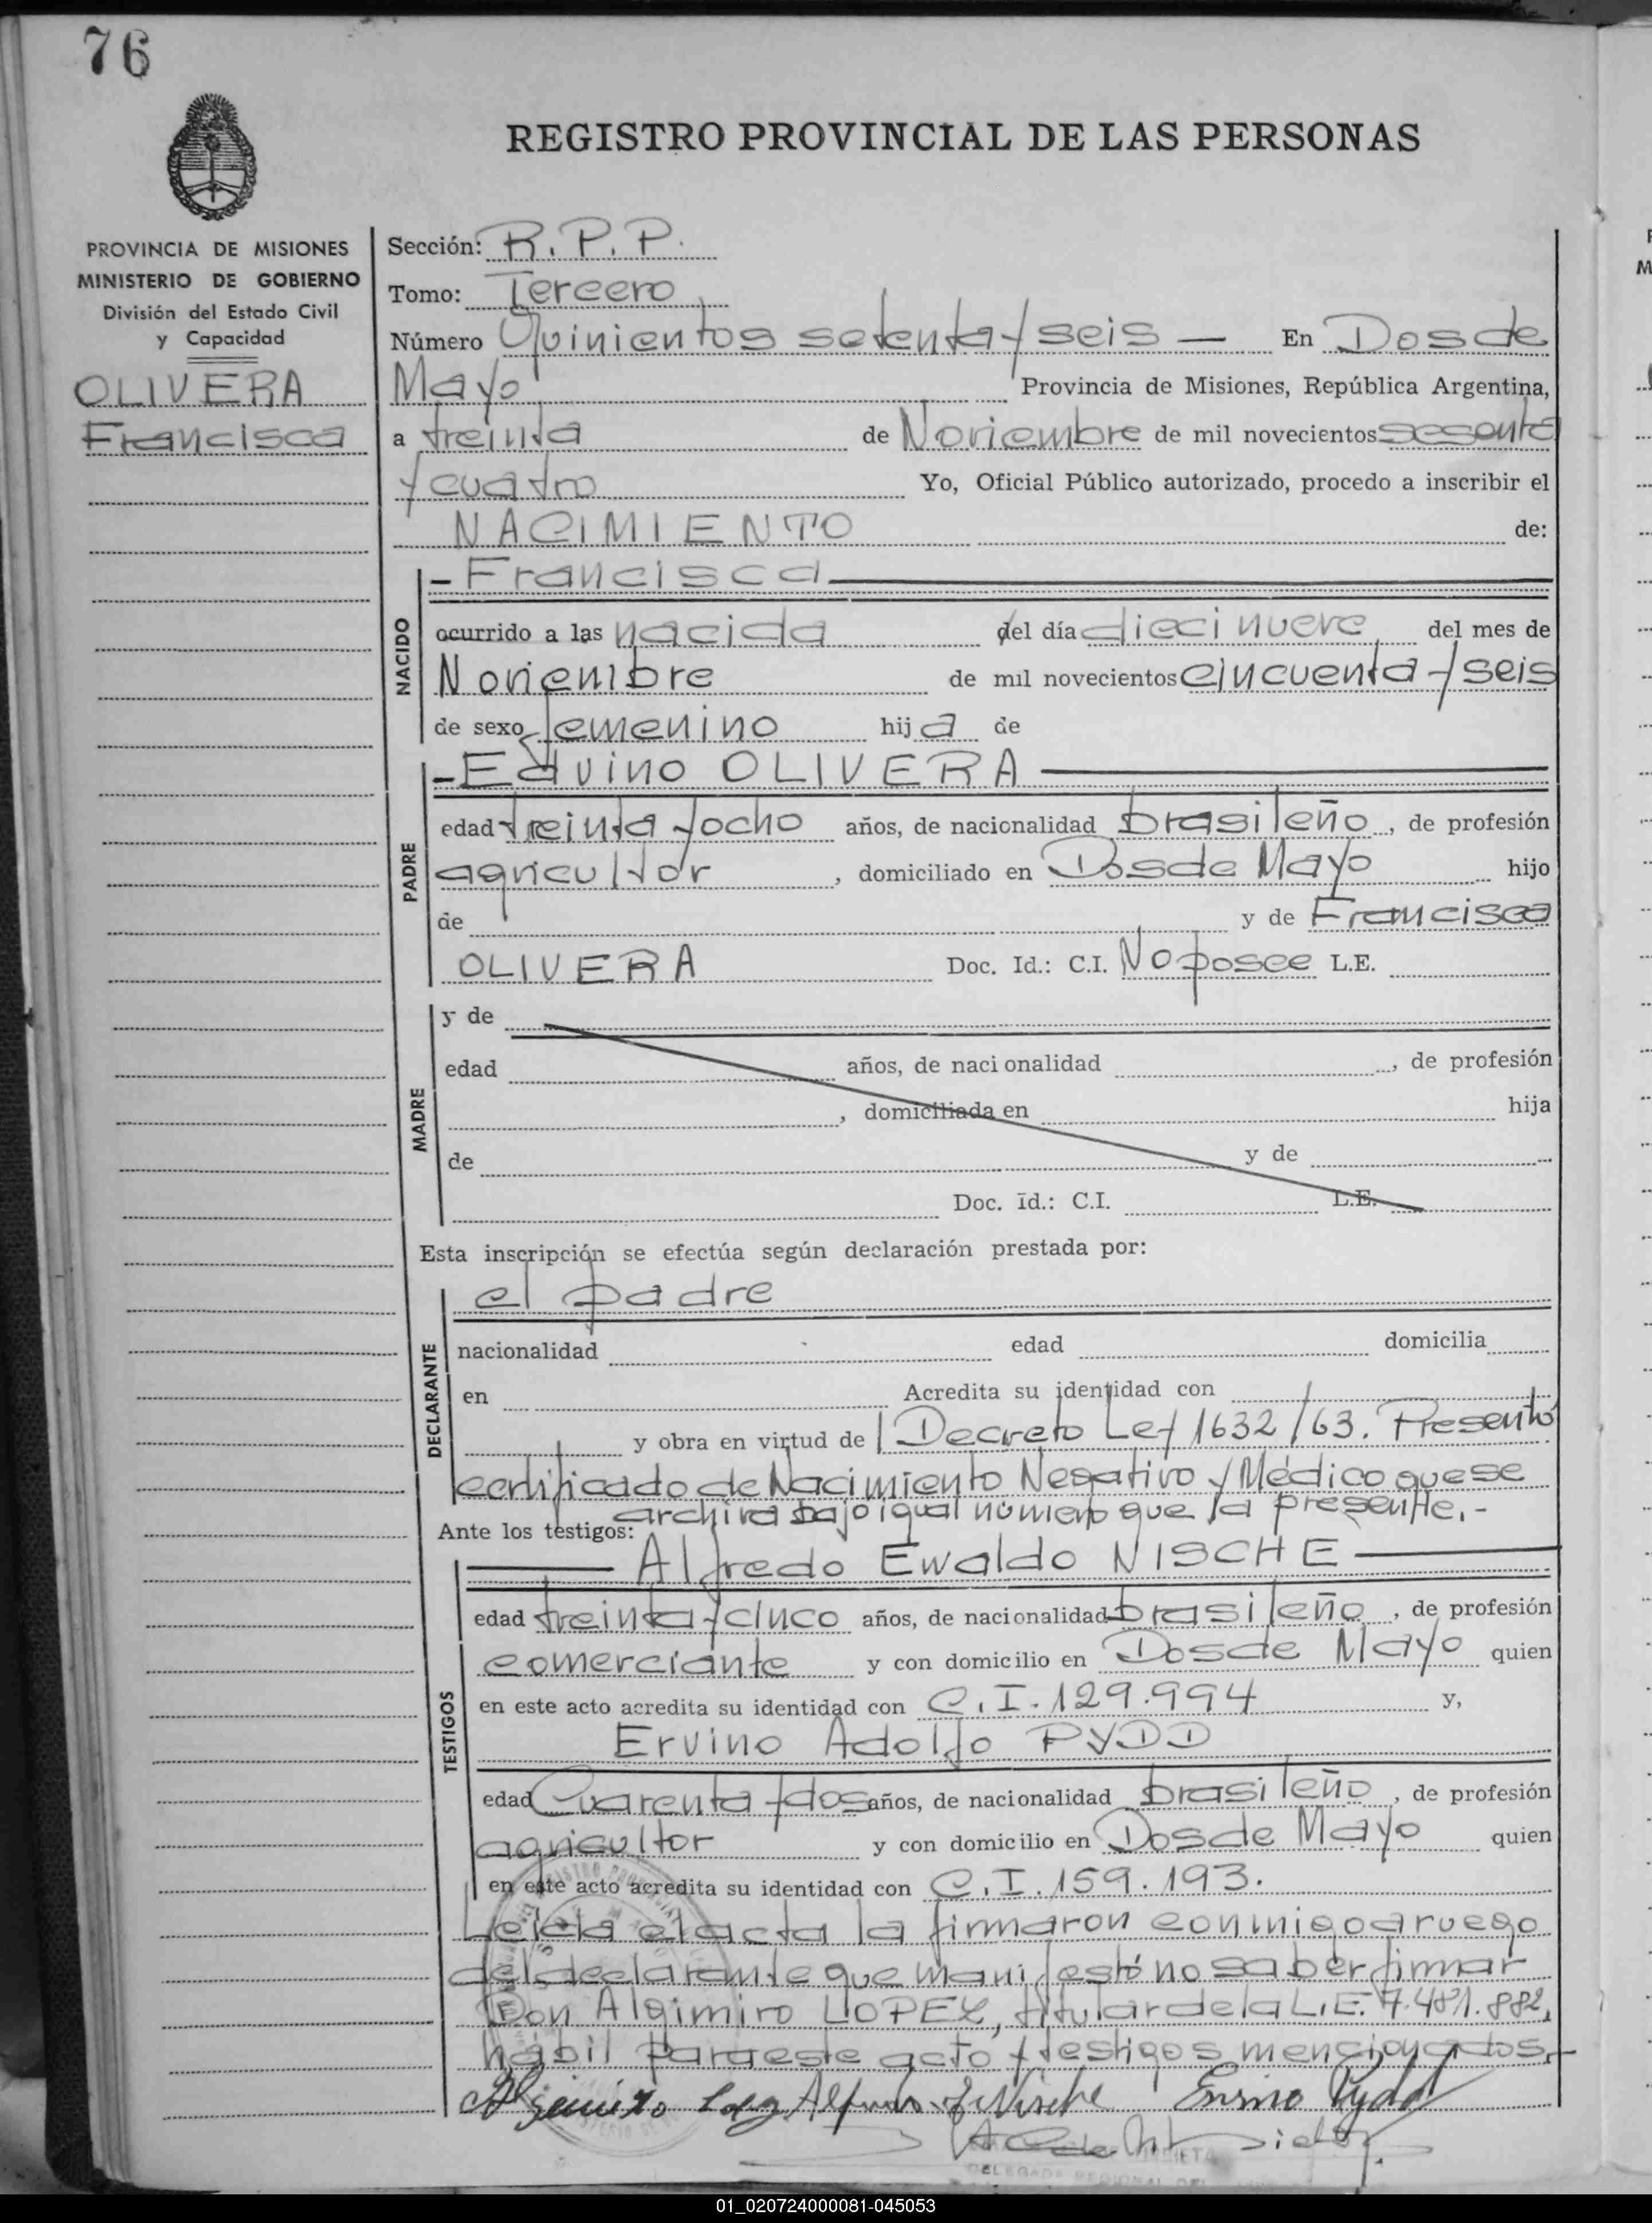 76
REGISTRO PROVINCIAL DE LAS PERSONAS
PROVINCIA DE MISIONES
MINISTERIO DE GOBIERNO
División del Estado Civil
y Capacidad
OLIVERA
Francisca
Sección: R.P.P.
Tomo: Tercero
Número Quinientos setenta y seis — En Dos de
Mayo Provincia de Misiones, República Argentina,
a treinta de Noviembre de mil novecientos sesenta
y cuatro Yo, Oficial Público autorizado, procedo a inscribir el
NACIMIENTO de:
NACIDO
- Francisca
ocurrido a las nacida del día diecinueve del mes de
Noviembre de mil novecientos cincuenta y seis
de sexo femenino hija de
PADRE
- Edvino OLIVERA
edad treinta y ocho años, de nacionalidad brasileño, de profesión
agricultor, domiciliado en Dos de Mayo hijo
de y de Francisca
OLIVERA Doc. Id.: C.I. No posee L.E.
MADRE
y de
edad años, de nacionalidad , de profesión
, domiciliada en hija
de y de
Doc. Id.: C.I. L.E.
Esta inscripción se efectúa según declaración prestada por:
DECLARANTE
el padre
nacionalidad edad domicilia
en Acredita su identidad con
y obra en virtud de Decreto Ley 1632/63. Presentó
certificado de Nacimiento Negativo y Médico que se
archiva bajo igual número que la presente.-
Ante los testigos:
TESTIGOS
Alfredo Ewaldo NISCHE
edad treinta y cinco años, de nacionalidad brasileño, de profesión
comerciante y con domicilio en Dos de Mayo quien
en este acto acredita su identidad con C.I. 129.994 y,
Ervino Adolfo PYDD
edad Cuarenta y dos años, de nacionalidad brasileño, de profesión
agricultor y con domicilio en Dos de Mayo quien
en este acto acredita su identidad con C.I. 159.193.
Leida el acta la firmaron conmigo a ruego
del declarante que manifestó no saber firmar
Don Algimiro LOPEZ, titular de la L.E. 7.481.882,
hábil para este acto y testigos mencionados.-
Ervino Pydd
DELEGADA REGIONAL DEL
01_020724000081-045053